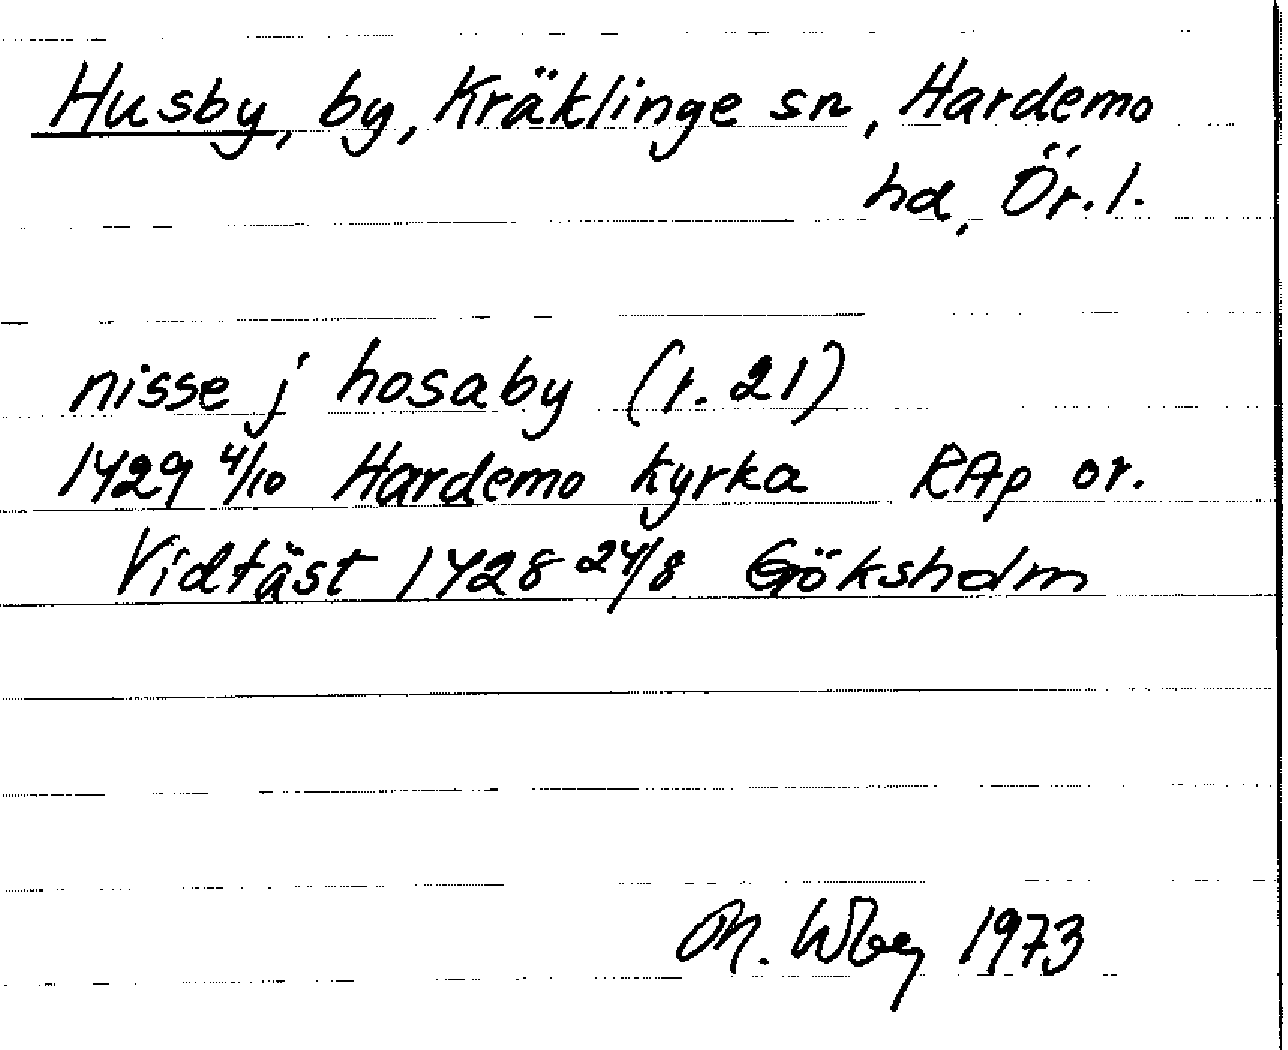 Husby, by, Kräklinge sn, Hardemo
hd, Ör. l.
nisse j hosaby (r. 21)
1429 4/10 Hardemo kyrka RAp or.
Vidfäst 1428 24/8 Göksholm
M. Wbg 1973